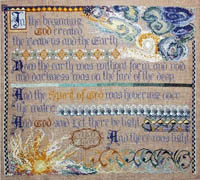 In the beginning
God created
the heavens and the Earth
the earth was without form, and void
and darkness was on the face of the deep
And the Spirit of God was hovering over
the waters
And God said let there be light
And there was light